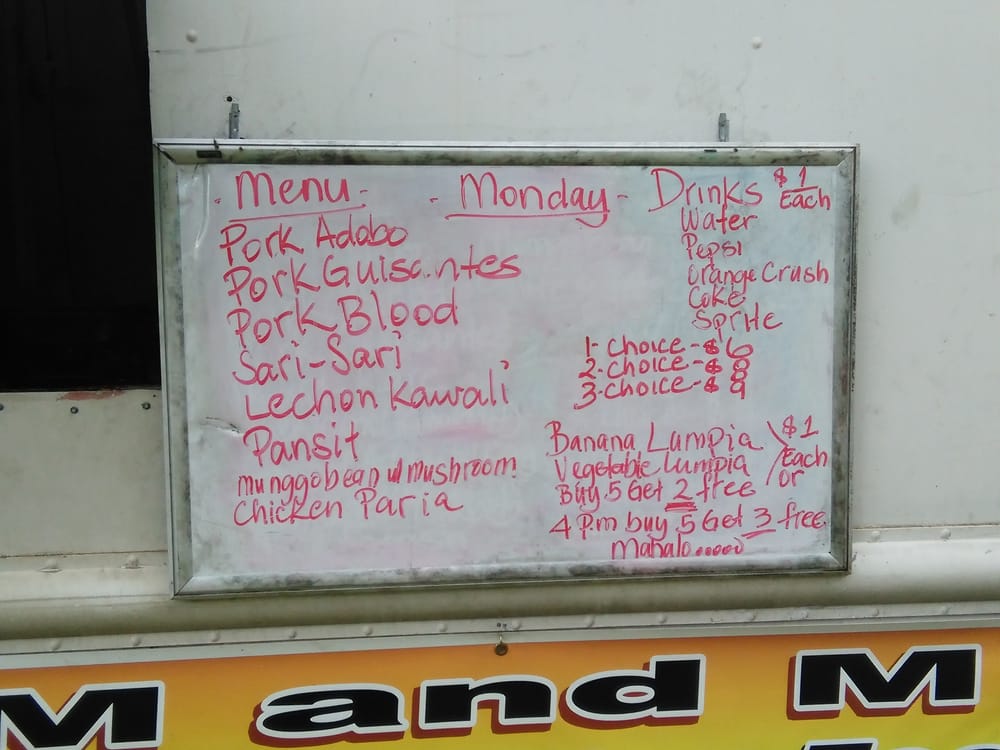 Menu - Monday - Drinks $1 Each
Pork Adobo
Pork Guisantes
Pork Blood
Sari-Sari
Lechon Kawali
Pansit
munggobean w/ mushroom
Chicken Paria
Water
Pepsi
Orange Crush
Coke
Sprite
1- Choice - $6
2- Choice - $8
3- Choice - $9
Banana Lumpia $1
Vegetable Lumpia Each
Buy 5 Get 2 free or
4 P.m buy 5 Get 3 free
Mahalo.....
M and M